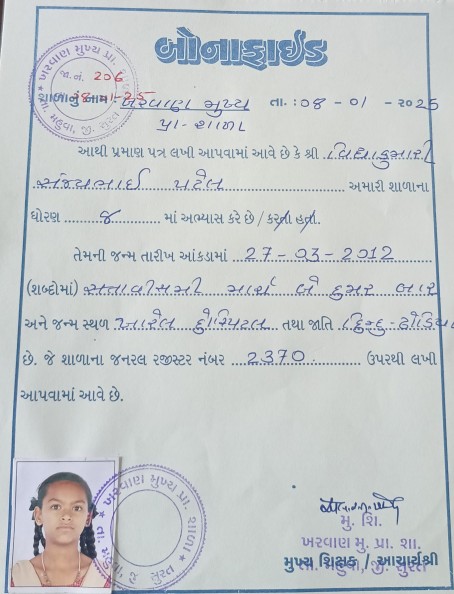 બોનાફાઈડ
ખરવાણ મુખ્ય પ્રા. શાળા
જા.નં. 206
તા. 08-01-25
તા. મહુવા, જી. સુરત
શાળાનું નામ ખરવાણ મુખ્ય તા. : 08 - 01 - ૨૦25
પ્રા - શાળા
આથી પ્રમાણ પત્ર લખી આપવામાં આવે છે કે શ્રી
સંજયભાઈ પટેલ અમારી શાળાના
ધોરણ માં અભ્યાસ કરે છે / કરતા હતા.
તેમની જન્મ તારીખ આંકડામાં 27-03-2012
(શબ્દોમાં) સત્તાવીસમી માર્ચ બે હજાર બાર
અને જન્મ સ્થળ હોસ્પિટલ તથા જાતિ હિન્દુ-ઢોડિયા
છે. જે શાળાના જનરલ રજીસ્ટર નંબર 2370 ઉપરથી લખી
આપવામાં આવે છે.
ખરવાણ મુખ્ય પ્રા. શાળા
મુ. શિ.
ખરવાણ મુ. પ્રા. શા.
તા. મહુવા, જી. સુરત
મુખ્ય શિક્ષક / આચાર્યશ્રી